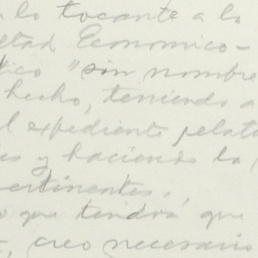 lo tocante a lo
etad Economico-
tico "sin nombre
hecho, teniendo a
l expediente relat
es y haciendo la
ertinentes,
o que tendrá que
, creo necesario